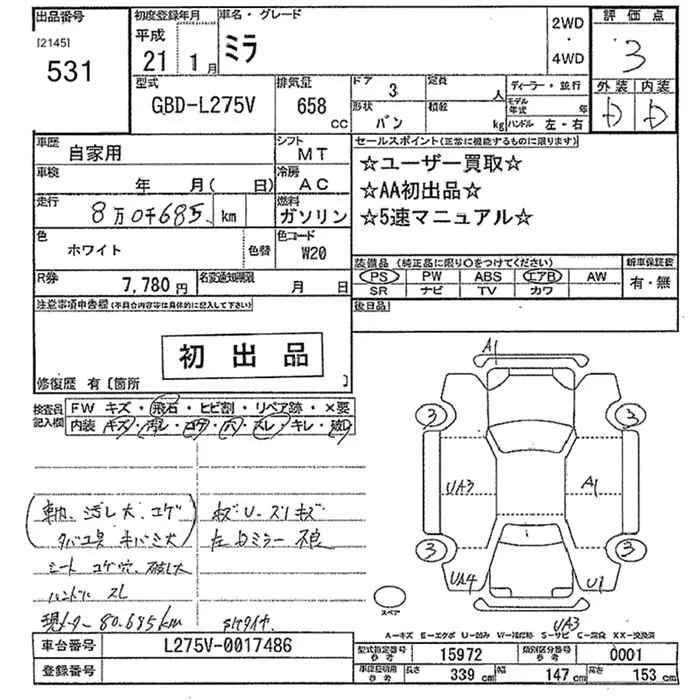 出品番号
[2145]
531
初度登録年月
平成
21
1月
車名・グレード
ミラ
2WD
・
4WD
評価点
3
外装
内装
D
D
型式
GBD-L275V
排気量
658
CC
ドア
3
定員
人
形状
バン
積数
kg
ディーラー・並行
モデル年式
年
ハンドル
左-右
車歴
自家用
シフト
MT
車検
年 月(日)
冷房
AC
走行
8万0千685
km
燃料
ガソリン
色
ホワイト
色替
色コード
W20
R券
7,780円
名変通知期限
月 日
セールスポイント(正常に機能するものに限ります)
☆ユーザー買取☆
☆AA初出品☆
☆5速マニュアル☆
装備品(純正品に限り○をつけてください)
新車保証書
PS PW ABS エアB AW
SR ナビ TV カワ
有・無
注意事項申告欄(不具合内容等は具体的に記入して下さい)
初出品
修復歴 有〔箇所 〕
後日品
検査員記入欄
FW キズ・飛石・ヒビ割・リペア跡・×要
内装 キズ・汚レ・コゲ・穴・スレ・キレ・破レ
車内、汚し大、コゲ
シート コゲ穴、破レ大
ハンドル スレ
現メーター80.685km
キズU、スリキズ
左右ミラー 不良
A1
3
3
UA3
A1
3
3
UA4
U1
UA3
スペア
A-キズ E-エクボ U-凹み W-補修跡 S-サビ C-腐食 XX-交換済
車台番号
L275V-0017486
登録番号
型式指定番号
参考
15972
類別区分番号
参考
0001
車庫証明用
参考
長さ
339 cm
幅
147 cm
高さ
153 cm